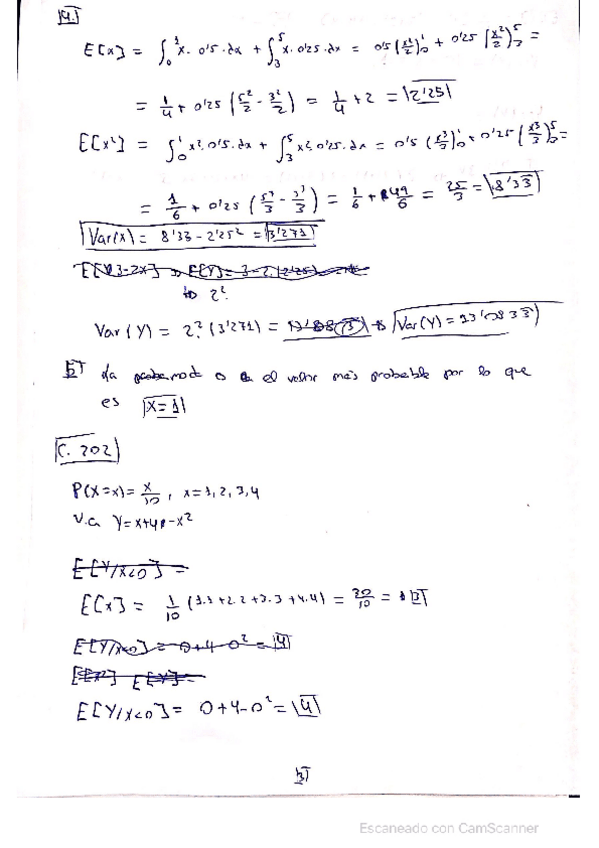 4.
E[X] = ∫₀¹ x · 0'5 · dx + ∫₃⁵ x · 0'25 · dx = 0'5 (x²/2)₀¹ + 0'25 (x²/2)₃⁵ =
= 1/4 + 0'25 (5²/2 - 3²/2) = 1/4 + 2 = 2'25
E[X²] = ∫₀¹ x² · 0'5 · dx + ∫₃⁵ x² · 0'25 · dx = 0'5 (x³/3)₀¹ + 0'25 (x³/3)⁵ =
= 1/6 + 0'25 (5³/3 - 3³/3) = 1/6 + 49/6 = 25/3 = 8'33
Var(X) = 8'33 - 2'25² = 3'271
E[3-2X] → E[Y] = 3-2·(2'25)
↳ 2²
Var(Y) = 2² · (3'271) = → Var(Y) = 13'0833
5 La o el valor más probable por lo que
es X = 1
C. 202
P(X=x) = x/10, x = 1, 2, 3, 4
V.a Y = x+4-x²
E[Y/X<0] =
E[X] = 1/10 (1.1 + 2.2 + 3.3 + 4.4) = 30/10 = 3
E[Y/X<0] = 0+4-0² = 4
E[Y/X<0] = 0+4-0² = 4
3
Escaneado con CamScanner